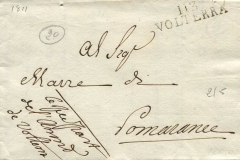 1811
20
115
VOLTERRA
Al Sigr
Maire di
Pomarance
215
de Volterra